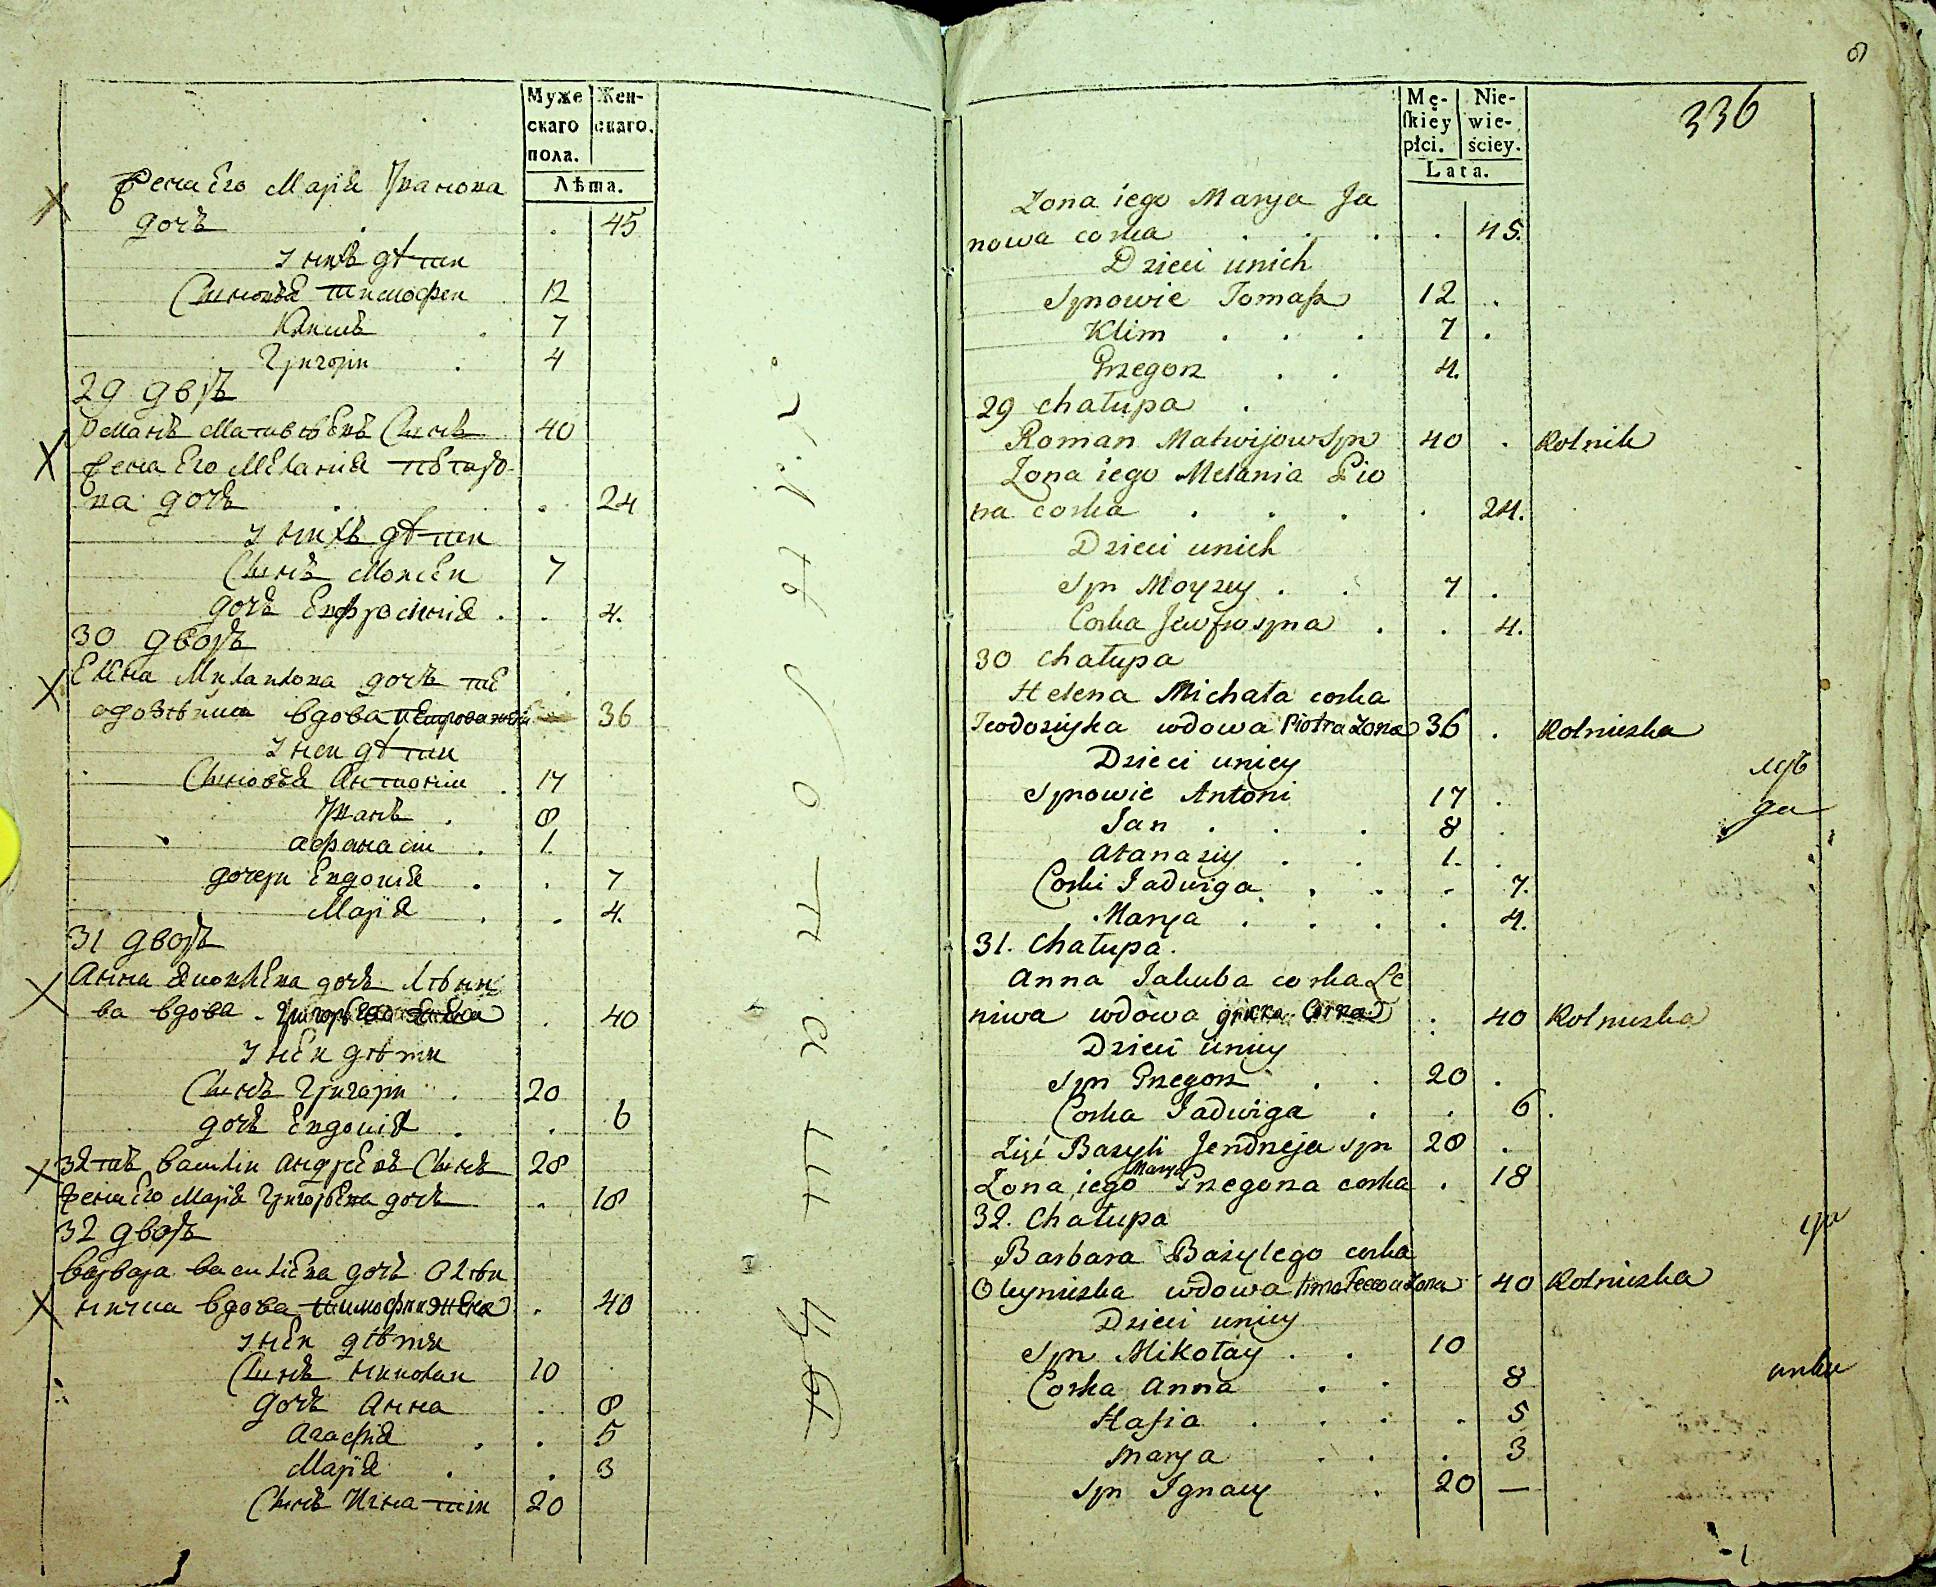 Муже
скаго
пола.
Жен-
скаго.
Лѣта.
Жена Его Марія Иванова
дочъ . 45
У нихъ дѣти
Сыновья Тимофеи 12
Климъ 7
Григорiи 4
29 дворъ
Романъ Матвѣевъ Сынъ 40
Жена Его Мелания Петро-
ва дочъ . 24
У нихъ дѣти
Сынъ Моисеи 7
дочъ Евфросиния . 4.
30 дворъ
Елена Михаилова дочъ
вдова 36
У неи дѣти
Сыновья Антонiи 17
Иванъ 8
Афанасiи 1.
дочери Евдокия . 7
Марiя . 4.
31 дворъ
Анна Яковлева дочъ
ва вдова . 40
У неи дѣти
Сынъ Григорiи 20
дочъ Евдокия . 6
Василiи Андреевъ Сынъ 28
Жена Его Марiя Григорьева дочъ . 18
32 дворъ
Варвара Василiева дочъ
вдова . 40
У неи дѣти
Сынъ Николаи 10
дочъ Анна . 8
Агафия . 5
Марiя . 3
Сынъ Игнатiи 20
336
Mę-
skiéy
płci.
Nie-
wie-
ściey.
Lata.
Zona iego Marya Ja
nowa corka . 45.
Dzieci unich
Synowie Tomasz 12 .
Klim . . . 7 .
Grzegorz . . 4.
29 chałupa .
Roman Matwijow Syn 40 . Rolnik
Zona iego Melania Pio
tra corka . . . . 24.
Dzieci unich
Syn Moyzey . . 7 .
Corka Jewfrosyna . . 4.
30 chałupa
Helena Michała corka
Teodoziyka wdowa Piotra Zona 36 . Rolniczka
Dzieci uniey
Synowie Antoni 17 .
Jan . . . 8 .
Atanaziy . . 1. .
Corki Jadwiga . . . 7.
Marya . . . . 4.
31. Chałupa.
Anna Jakuba corka Le
niwa wdowa . 40 Rolniczka
Dzieci uniey
Syn Grzegorz . . 20 .
Corka Jadwiga . . 6 .
Bazyli Jendrzeja syn 28 .
Marya
Zona iego Grzegorza corka . 18
32. Chałupa
Barbara Bazylego corka
wdowa 40 Rolniczka
Dzieci uniey
Syn Mikołay . . 10
Corka Anna . . 8
Hafia . . . . 5
Marya . . . 3
Syn Ignacy . 20 —